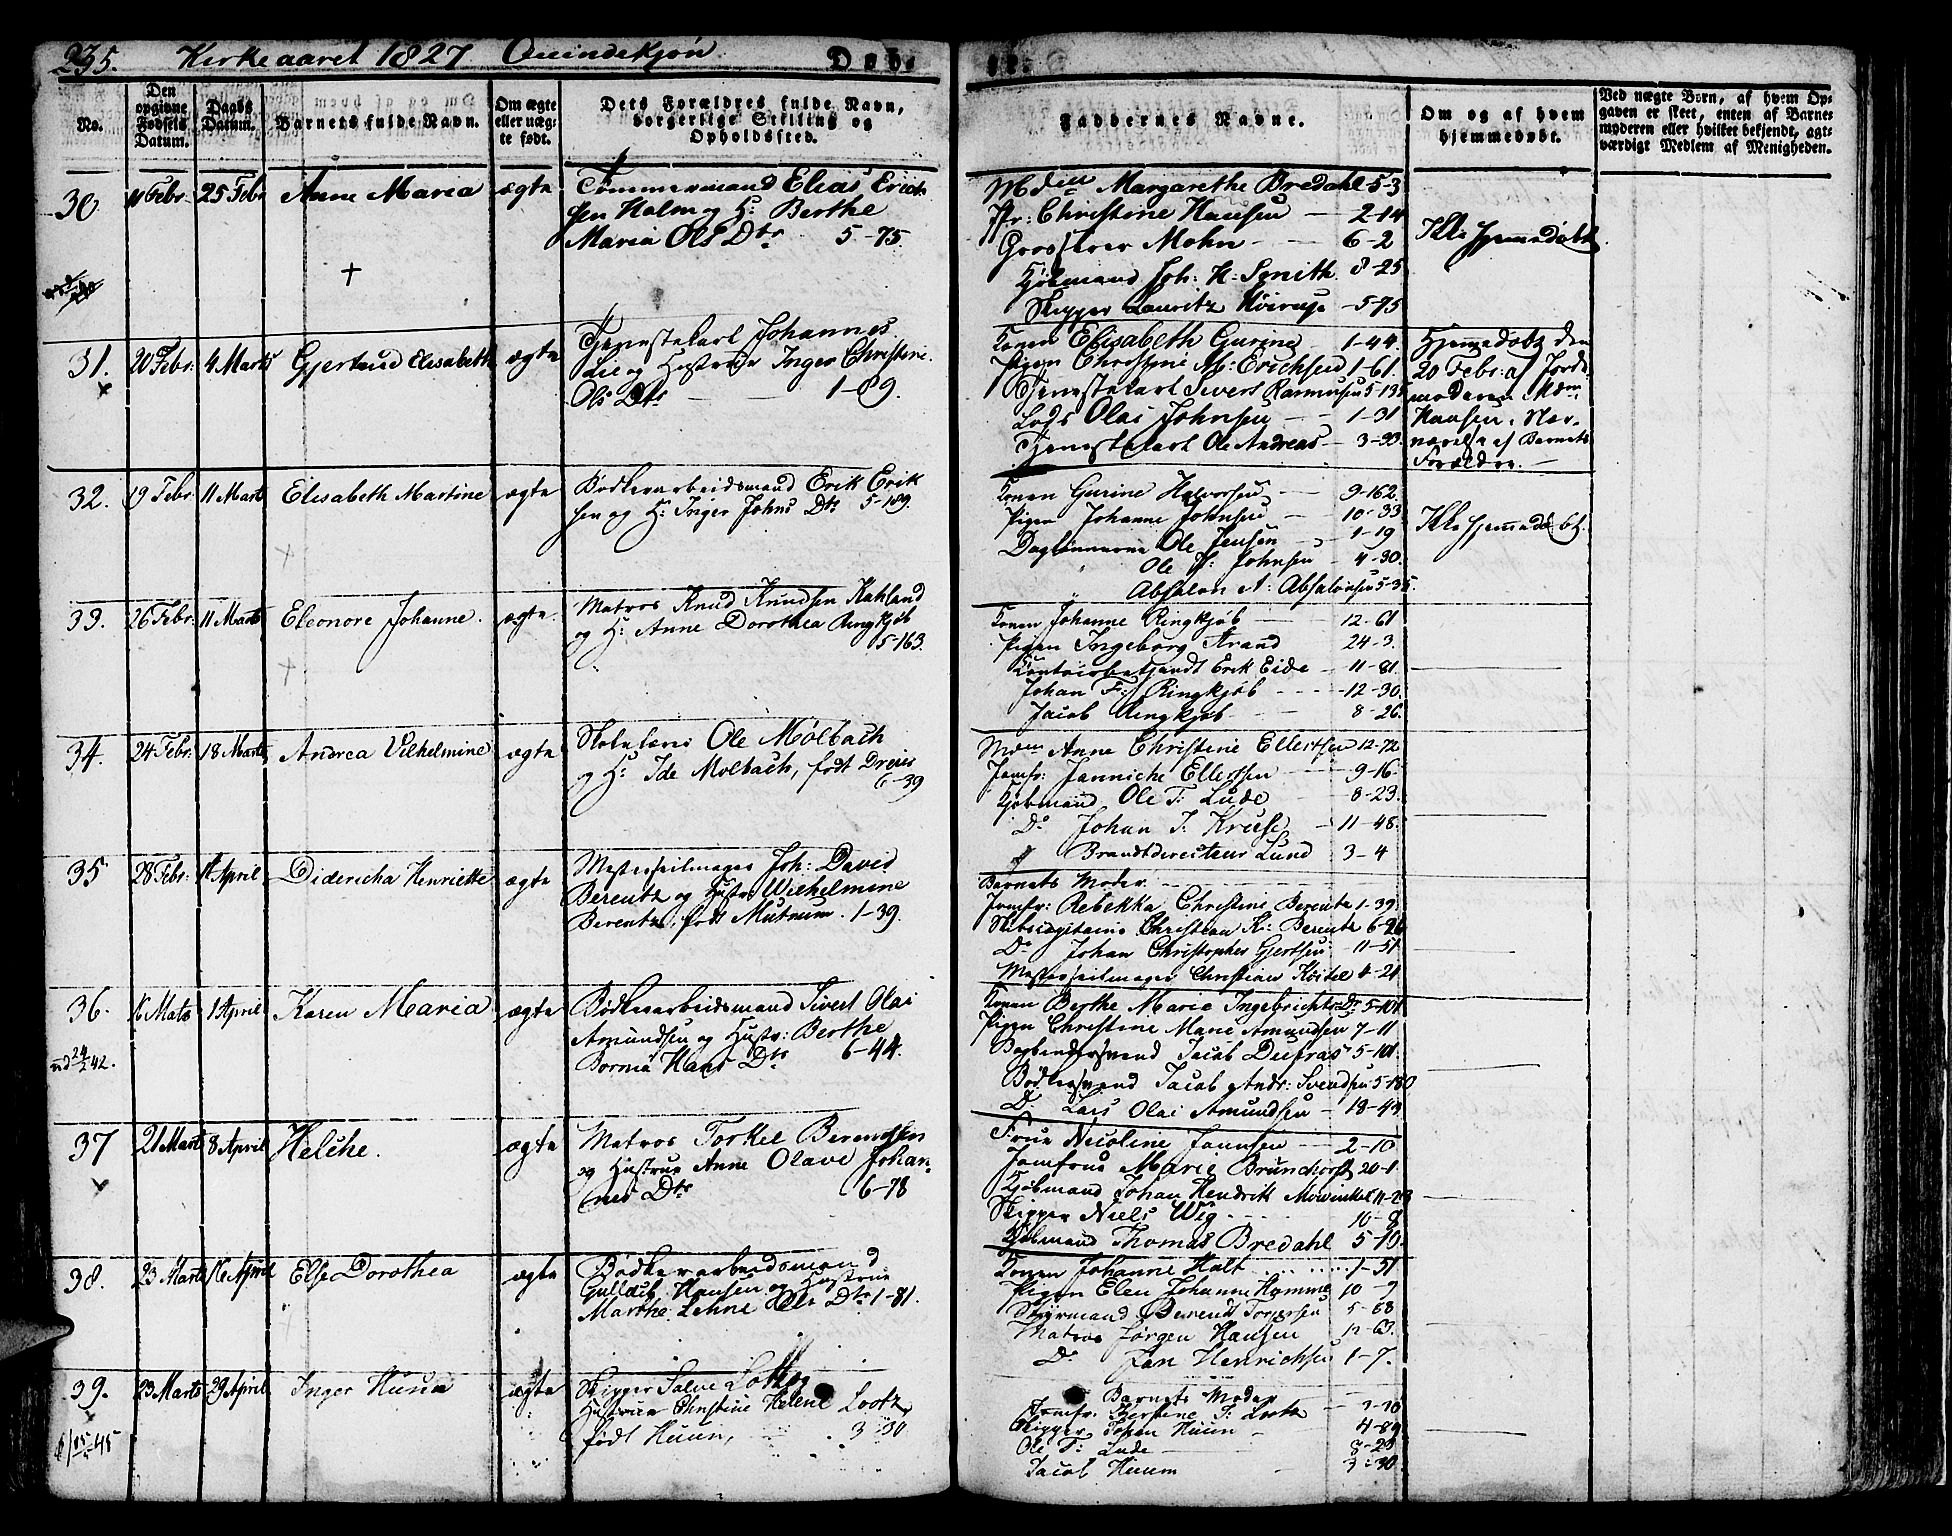 235. Kirkeaaret 1827 Quindekjøn Døb-
No.
Den opgivne Fødsels Datum.
Daabs Datum.
Barnets fulde Navn.
Om ægte eller uægte født.
Dets Forældres fulde Navn, borgerlige Stilling og Opholdssted.
Faddernes Navne.
Om og af hvem hjemmedøbt.
Ved uægte Børn, af hvem Opgaven er skeet, enten af Barnemoderen eller hvilket bekjendt, agtværdigt Medlem af Menigheden.
30. 11 Febr: 25 Febr Anne Maria ægte
Tømmermand Elias Erick
sen Holm og H: Berthe
Maria Ols Dtr 5-75.
Mdell Margarethe Bredahl 5-3
Jfr: Christine Hansen 2-14
Grosserer Mohn 6-2
Kjøbmand Joh: H: Smith 8-25
Skipper Lauritz 5-75
Ikke hjemmedøbt
31. 20 Febr: 4 Marts Gjertrud Elisabeth ægte
Tjenestekarl Johannes
Lie og Hustrue Inger Christine
Ols Dtr 1-89.
Konen Elisabeth Gurine 1-44.
Pigen Christine M: Erichsen 1-61.
Tjenestekarl Sivert Rasmusen 5-135
Lods Olai Johnsen 1-31
Tjenestekarl Ole Andreas 3-33
Hjemmedøbt den
20 Febr: af Jorde
moderen Mdm:
Hansen i Nær-
værelse af Barnets
Forældre.
32. 19 Febr 11 Marts Elisabeth Martine ægte
Bødkerarbeidsmand Erik Erik
sen og H: Inger Johns Dtr 5-189.
Konen Gurine Halvorsen 9-162.
Pigen Johanne Johnsen 10-33
Daglønnerne Ole Jensen 1-19
Ole H: Johnsen 4-30.
" Absalon A: Absalonsen 5-35.
Ikke hjemmedøbt.
33. 26 Febr: 11 Marts Eleonore Johanne. ægte.
Matros Knud Knudsen Kahland
og H: Anne Dorothea Ringkjøb
5-163.
Konen Johanne Ringkjøb 12-61
Pigen Ingeborg Strand 24-3.
Kontoirbetjendt Erik Eide 11-81.
Johan F: Ringkjøb 12-30.
Jacob Ringkjøb 8-26.
34. 24 Febr: 18 Marts Andrea Vilhelmine ægte
Skolelærer Ole Mølbach
og H: Ide Molbach, født Dreier
6-39
Mdm Anne Christine Ellertsen 12-72
Jomfr: Jannicke Ellertsen 9-16
Kjøbmand Ole T: Lude 8-23.
Do Johan J. Kruse 11-48.
Branddirecteur Lund 3-4
35 28 Febr: 1 April Didericha Henriette ægte
Mesterseilmager Joh: David
Berentz og Hustr Wilhelmine
Berentz, født Mutrum. 1-39.
Barnets Moder
Jomfr: Rebekka Christine Berentz 1-39.
Skibscapitaine Christian K: Berentz 6-26
Do Johan Christopher Gjertsen 11-51
Mesterseilmager Christian Køitel 4-21
36. 1 April Karen Maria ægte
Bødkerarbeidsmand Sivert Olai
Amundsen og Hustr: Berthe
Bornia Hans Dtr 6-44.
Konen Berthe Marie Ingebrichts Dr 5-101
Pigen Christine Marie Amundsen 7-11
Bogbindersvend Jacob Dufras 5-101.
Bødkersvend Jacob Andr: Svendsen 5-180
D. Lars Olai Amundsen 18-43
37 21 Marts 8 April Helche. ægte
Matros Torkel Berentsen
og Hustrue Anne Olave Johan
nes Dtr 6-78
Frue Nicoline Jannsen 2-10
Jomfrue Marie Brunchorst 20-1
Kjøbmand Johan Hendrik Mowinkel 11-
Skipper Niels Wig 10-8
Kjøbmand Thomas Bredahl 5-10.
38. 23 Marts 16 April Else Dorothea ægte
Bødkerarbeidsmand
Gullach Hansen og Hustrue
Marthe Lehne Ols Dtr 1-81.
Konen Johanne Holt 1-51
Pigen Elen Johanne Homme 10-7
Styrmand Berendt Torgersen 5-68
Matros Jørgen Hansen 12-63.
Do Jan Henrichsen 1-7.
39. 23 Marts 29 April Inger Huun ægte
Skipper Salve og
Hustrue Christine Helene Lootz
født Huun, 3-30
Barnets Moder
Jomfr. T: Lootz
Skipper Johan Huun 4-89
Ole T: Lude 8-23
Jacob Huum 3-30